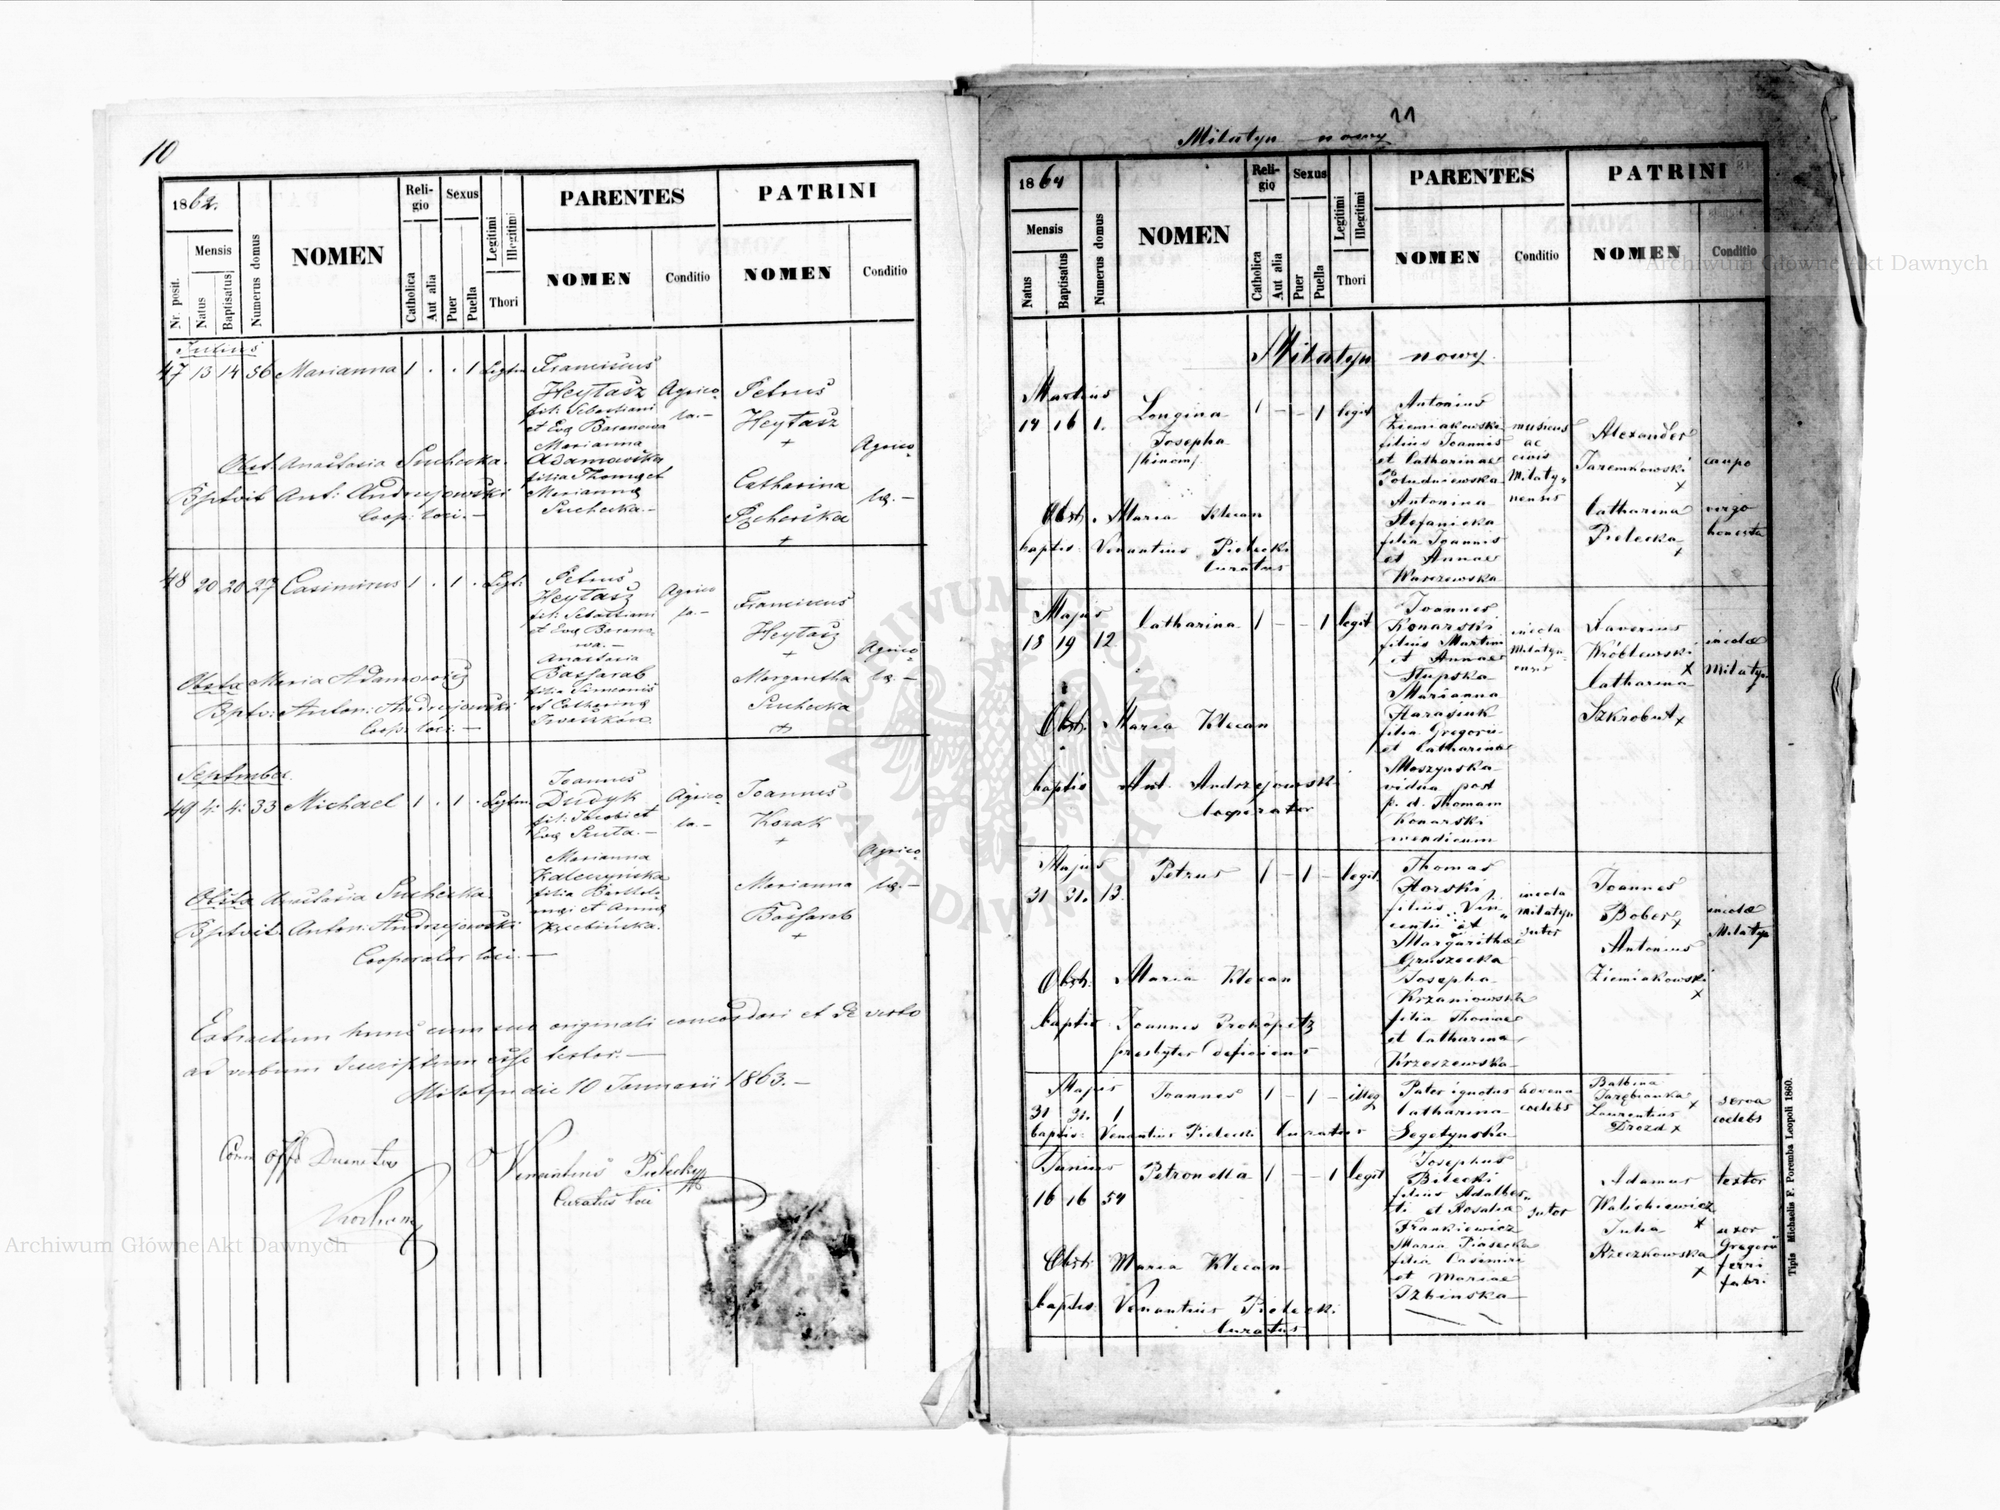 10
1862.
Nr. posit.
Mensis
Natus
Baptisatus
Numerus domus
NOMEN
Religio
Catholica
Aut alia
Sexus
Puer
Puella
Legitimi
Illegitimi
Thori
PARENTES
NOMEN
Conditio
PATRINI
NOMEN
Conditio
Julius
47 13 14 56 Marianna 1 . . 1 Legtm
Franciscus
Heytasz
fil: Sebastiani
et Eva Baranowa
Marianna
Adamowska
filia Thoma et
Marianna
Suchecka.—
Agrico-
la.—
Petrus
Heytasz
+
Catharina
+
Agrico-
læ.—
Obst: Anastasia Suchecka.
Bptvit Ant: Andrzejowski
Coop: loci.—
48 20 20 27 Casimirus 1 . 1 . Legt:
Petrus
Heytasz
fil: Sebastiani
et Eva Barano-
wa.—
Anastasia
Bassarab
filia Simeonis
et Catharina
Agrico
la.—
Franciscus
Heytasz
+
Margaretha
Suchecka
+
Agrico-
læ.—
Obsta Maria Adamowicz
Bptv: Anton: Andrzejowski
Coop: loci.—
September
49 4. 4. 33 Michael 1 . 1 . Legtm.
Joannes
Dudyk
fil: Jacobi et
Eva Senta.—
Marianna
filia Bartholo-
mæi et Anna
Agrico-
la.—
Joannes
Kozak
+
Marianna
Bassarab
+
Agrico-
læ.—
Obsta Anastasia Suchecka.
Bptvit. Anton: Andrzejowski
Cooperator loci.—
Extractum hunc cum suo originali concordari et de verbo
ad verbum descriptum esse testor.—
Milatyn die 10 Januarii 1863.—
Venantius Pielecki
Curatus loci
11
Milatyn nowy
1864
Mensis
Natus
Baptisatus
Numerus domus
NOMEN
Religio
Catholica
Aut alia
Sexus
Puer
Puella
Legitimi
Illegitimi
Thori
PARENTES
NOMEN
Conditio
PATRINI
NOMEN
Conditio
Milatyn nowy
Martius
14 16 1. Longina
Josepha
/binom/
1 – – 1 legit
Antonius
Ziemiakowski
filius Joannis
et Catharinae
Południewska
Antonina
Stefanicka
filia Joannis
et Annae
Warszewska
musicus
ac
civis
Milaty-
nensis
Alexander
Jaremkowski
x
Catharina
Pielecka
x
caupo
virgo
honesta
Obst. Maria Klecan
baptis: Venantius Pielecki
Curatus
Majus
18 19 12 Catharina 1 – – 1 legit
Joannes
Konarski
filius Martini
et Annae
Słupska
Marianna
Harasiuk
filia Gregorii
et Catharina
Moszynska
vidua post
p. d. Thomam
Konarski
mendicum
incola
Milatyn-
ensis
Xaverius
Wróblewski
x
Catharina
Szkrobut x
incolæ
Milatyn
Obst. Maria Klecan
baptis Ant. Andrzejowski
Cooperator
Majus
31 31. 13. Petrus 1 – 1 – legit
Thomas
Horski
filius Vin-
centii et
Margarithæ
Gruszecka
Josepha
Krzaniowska
filia Thomae
et Catharina
Krzeszewska
incola
Milatyn
sutor
Joannes
Bober x
Antonius
Ziemiakowski
x
incolæ
Milatyn
Obst. Maria Klecan
baptis Joannes Prokopetz
presbyter deficiens
Majus
31 31. 1 Joannes 1 – 1 – illeg
baptis: Venantius Pielecki Curatus
Pater ignotus
Catharina
Segetynska
advena
coelebs
Balbina
Jarębianka x
Laurentius
Drozd x
serva
coelebs
Junius
16 16 54 Petronella 1 – – 1 legit
Josephus
Bilecki
filius Adalber-
ti et Rosalia
Frankiewicz
Maria Piasecka
filia Casimiri
et Mariae
Izbinska
sutor
Adamus
Walichiewicz
x
Julia
Rzeczkowska
x
textor
uxor
Gregorii
ferri
fabri
Obst: Maria Klecan
baptis: Venantius Pielecki
Curatus
Tipis Michaelis F. Poremba Leopoli 1860.
Archiwum Główne Akt Dawnych
Archiwum Główne Akt Dawnych
ARCHIWUM GŁÓWNE AKT DAWNYCH